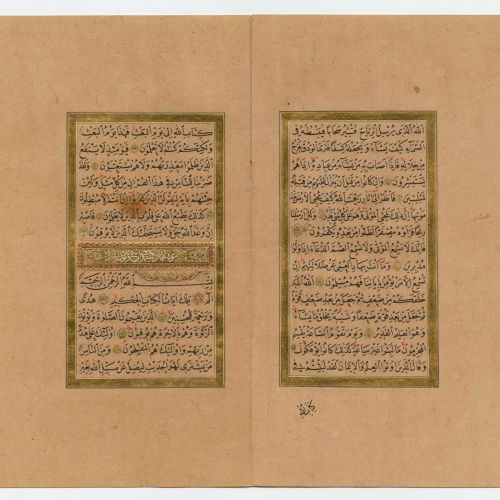 الله الذى يرسل الرياح فتثير سحابا فيبسطه فى
السماء كيف يشاء ويجعله كسفا فترى الودق يخرج
من خلاله فاذا اصاب به من يشاء من عباده اذا هم
يستبشرون وان كانوا من قبل ان ينزل عليهم من قبله
لمبلسين فانظر الى اثار رحمت الله كيف يحيى الارض بعد
موتها ان ذلك لمحيى الموتى وهو على كل شىء قدير ولئن ارسلنا
ريحا فراوه مصفرا لظلوا من بعده يكفرون
فانك لا تسمع الموتى ولا تسمع الصم الدعاء اذا ولوا
مدبرين وما انت بهاد العمى عن ضلالتهم ان
تسمع الا من يؤمن باياتنا فهم مسلمون الله الذى
خلقكم من ضعف ثم جعل من بعد ضعف قوة ثم
جعل من بعد قوة ضعفا وشيبة يخلق ما يشاء
وهو العليم القدير ويوم تقوم الساعة يقسم
المجرمون ما لبثوا غير ساعة كذلك كانوا يؤفكون
وقال الذين اوتوا العلم والايمان لقد لبثتم فى
كتاب الله الى يوم البعث فهذا يوم البعث
ولكنكم كنتم لا تعلمون فيومئذ لا ينفع
الذين ظلموا معذرتهم ولا هم يستعتبون ولقد
ضربنا للناس فى هذا القران من كل مثل ولئن
جئتهم باية ليقولن الذين كفروا ان انتم الا مبطلون
كذلك يطبع الله على قلوب الذين لا يعلمون فاصبر
ان وعد الله حق ولا يستخفنك الذين لا يوقنون
بسم الله الرحمن الرحيم
الم تلك ايات الكتاب الحكيم هدى
ورحمة للمحسنين الذين يقيمون الصلوة ويؤتون
الزكوة وهم بالاخرة هم يوقنون اولئك على هدى
من ربهم واولئك هم المفلحون ومن الناس
من يشترى لهو الحديث ليضل عن سبيل الله بغير